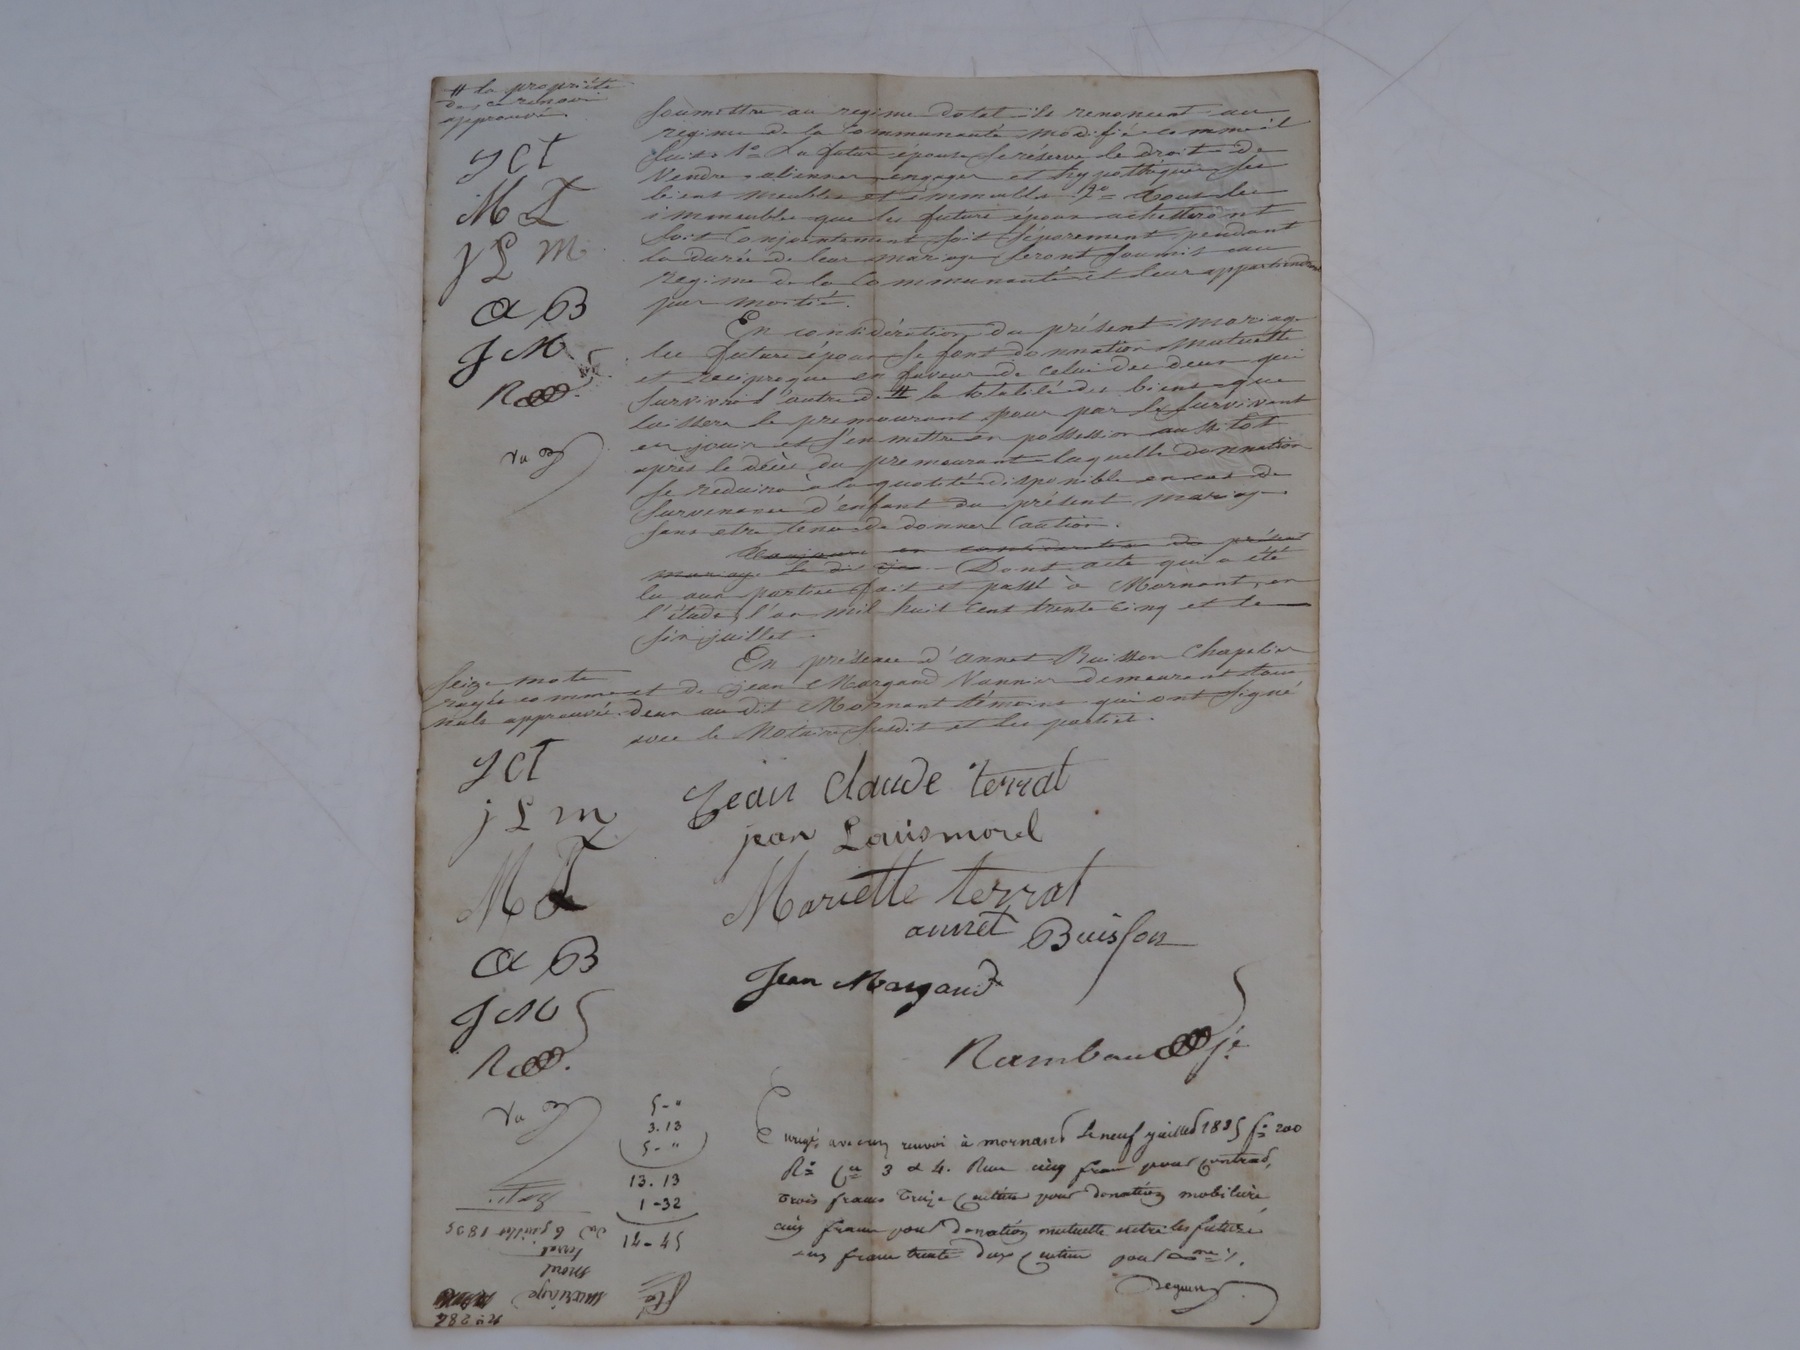 # la propriété
de, ce renvoi
approuvé.
JCT
MT
jLm
aB
JM
R
Vu
soumettre au regime dotal ils renoncent au
regime de la Communauté modifié comme il
suit. 1º La future épouse se réserve le droit de
Vendre, alienner, engager et hypothéquer ses
biens meubles et immeubles. 2º Tous les
immeubles que les futurs époux achetteront
soit Conjointement soit séparement pendant
la durée de leur mariage seront soumis au
regime de la Communauté et leur appartiendront
par moitié.
En considération du présent mariage
les futurs époux se font donnation mutuelle
et reciproque en faveur de celui des deux qui
survivra l'autre d # la totalité des biens que
laissera le premourant pour par le survivant
en jouir et s'en mettre en possession aussitot
après le décès du premourant laquelle donnation
se reduira à la quotité disponible en cas de
survenance d'enfant du présent mariage
sans etre tenu de donner Caution.
en consideration du présent
mariage la dit Dont acte qui a été
lu aux parties fait et passé à Mornant, en
l'étude, l'an mil huit cent trente cinq et le
six juillet.
En présence d'annet Buisson Chapelier
et de jean Margaud Vannier demeurant tous
deux au dit Mornant témoins qui ont signé
avec le Notaire susdit et les parties.
Seize mots
rayés comme
nuls approuvés.
JCT
jLm
MT
aB
JM
R
Vu
Jean Claude terrat
jean Louis morel
Mariette terrat
annet Buisson
Jean Margaud
Rambau
5-"
3.13
5-"
13.13
1-32
14-45
Enregé avec un renvoi à mornant le neuf juillet 1835 fº 200
Rº Cse 3 et 4. Reçu cinq francs pour contrat,
trois francs treize centimes pour donation mobilière
cinq francs pour donation mutuelle entre les futurs
un franc trente deux centimes pour
Nº 284
mariage
morel
terrat
du 6 juillet 1835